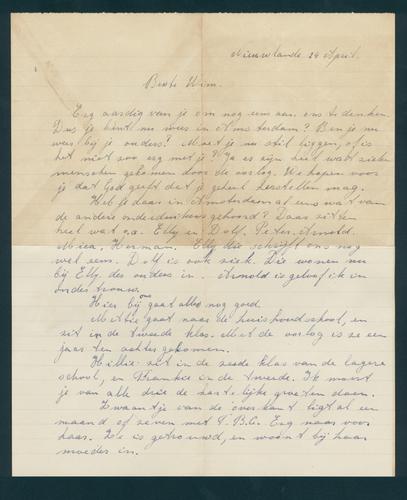 Nieuwlande 24 April.
Beste Wim.
Erg aardig van je om nog eens aan ons te denken.
Dus je bent nu weer in Amsterdam? Ben je nu
weer bij je ouders? Moet je nu stil liggen, of is
het niet zoo erg met je? Ja er zijn heel wat zieke
menschen gekomen door de oorlog. We hopen voor
je dat God geeft dat je geheel herstellen mag.
Heb je daar in Amsterdam al eens wat van
de andere onderduikers gehoord? Daar zitten
heel wat o.a. Elly en Dolf, Peter, Arnold
Mien, Herman. Elly die schrijft ons nog
wel eens. Dolf is ook ziek. Die wonen nu
bij Elly der ouders in. Arnold is geloof ik in
ondertrouw.
Hier bij ons gaat alles nog goed.
Mattie gaat naar de huishoudschool, en
zit in de tweede klas. Met de oorlog is ze een
jaar ten achter gekomen.
Hillie zit in de zesde klas van de lagere
school, en Frankie in de tweede. Ik moest
je van alle drie de hartelijke groeten doen.
Zwaantje van de overkant ligt al een
maand of zeven met T.B.C. Erg naar voor
haar. Ze is getrouwd, en woont bij haar
moeder in.